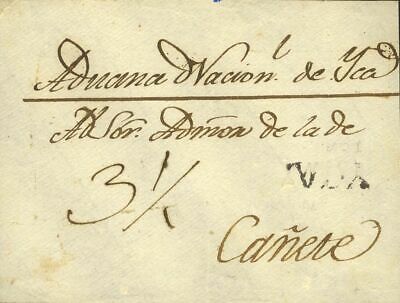 Aduana Nacion.l de Yca
Al Sor. Admor de la de
3 1/2
YCA
Cañete